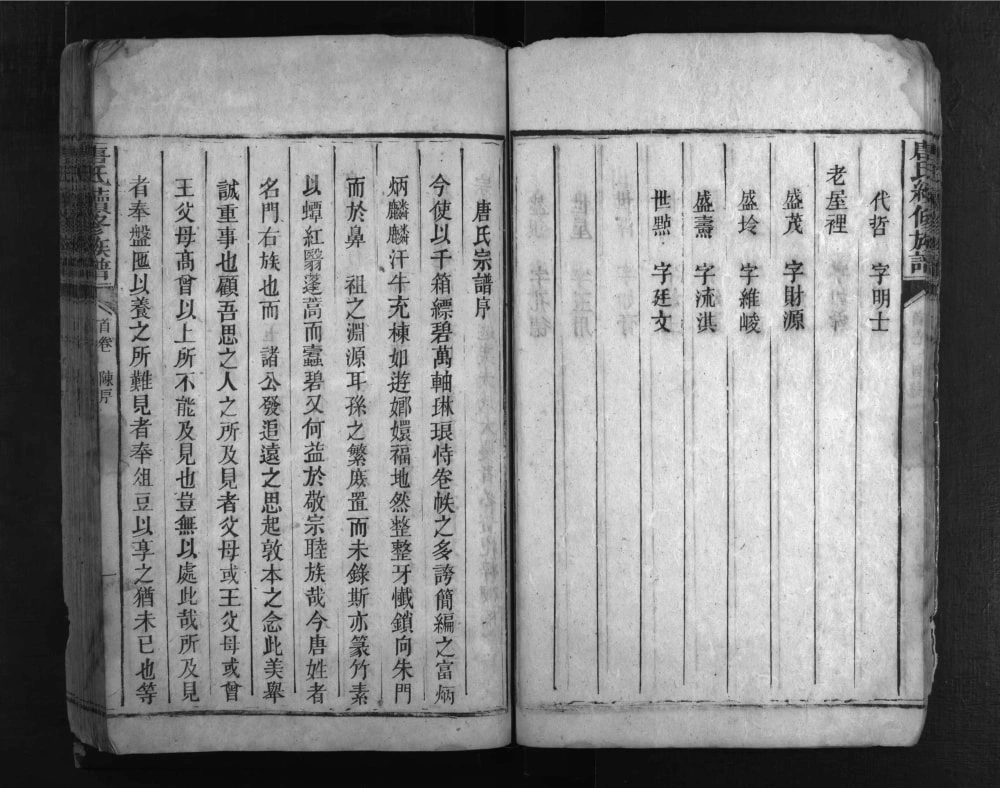 唐氏續修族譜
代哲 字明士
老屋裡
盛茂 字財源
盛坽 字維崚
盛壽 字流淇
世㸃 字廷文
唐氏宗譜序
今使以千箱縹碧萬軸琳琅恃卷帙之多誇簡編之富炳
炳麟麟汗牛充棟如遊嫏嬛福地然整整牙懴鎖向朱門
而於鼻 祖之淵源耳孫之繁庻置而未錄斯亦篆竹素
以蟫紅翳蓬蒿而蠹碧又何益於敬宗睦族哉今唐姓者
名門右族也而 諸公發追遠之思起敦本之念此美舉
誠重事也顧吾思之人之所及見者父母或王父母或曾
王父母高曾以上所不能及見也豈無以處此哉所及見
者奉盤匜以養之所難見者奉俎豆以享之猶未已也等
唐氏續修族譜
首卷 陳序
一